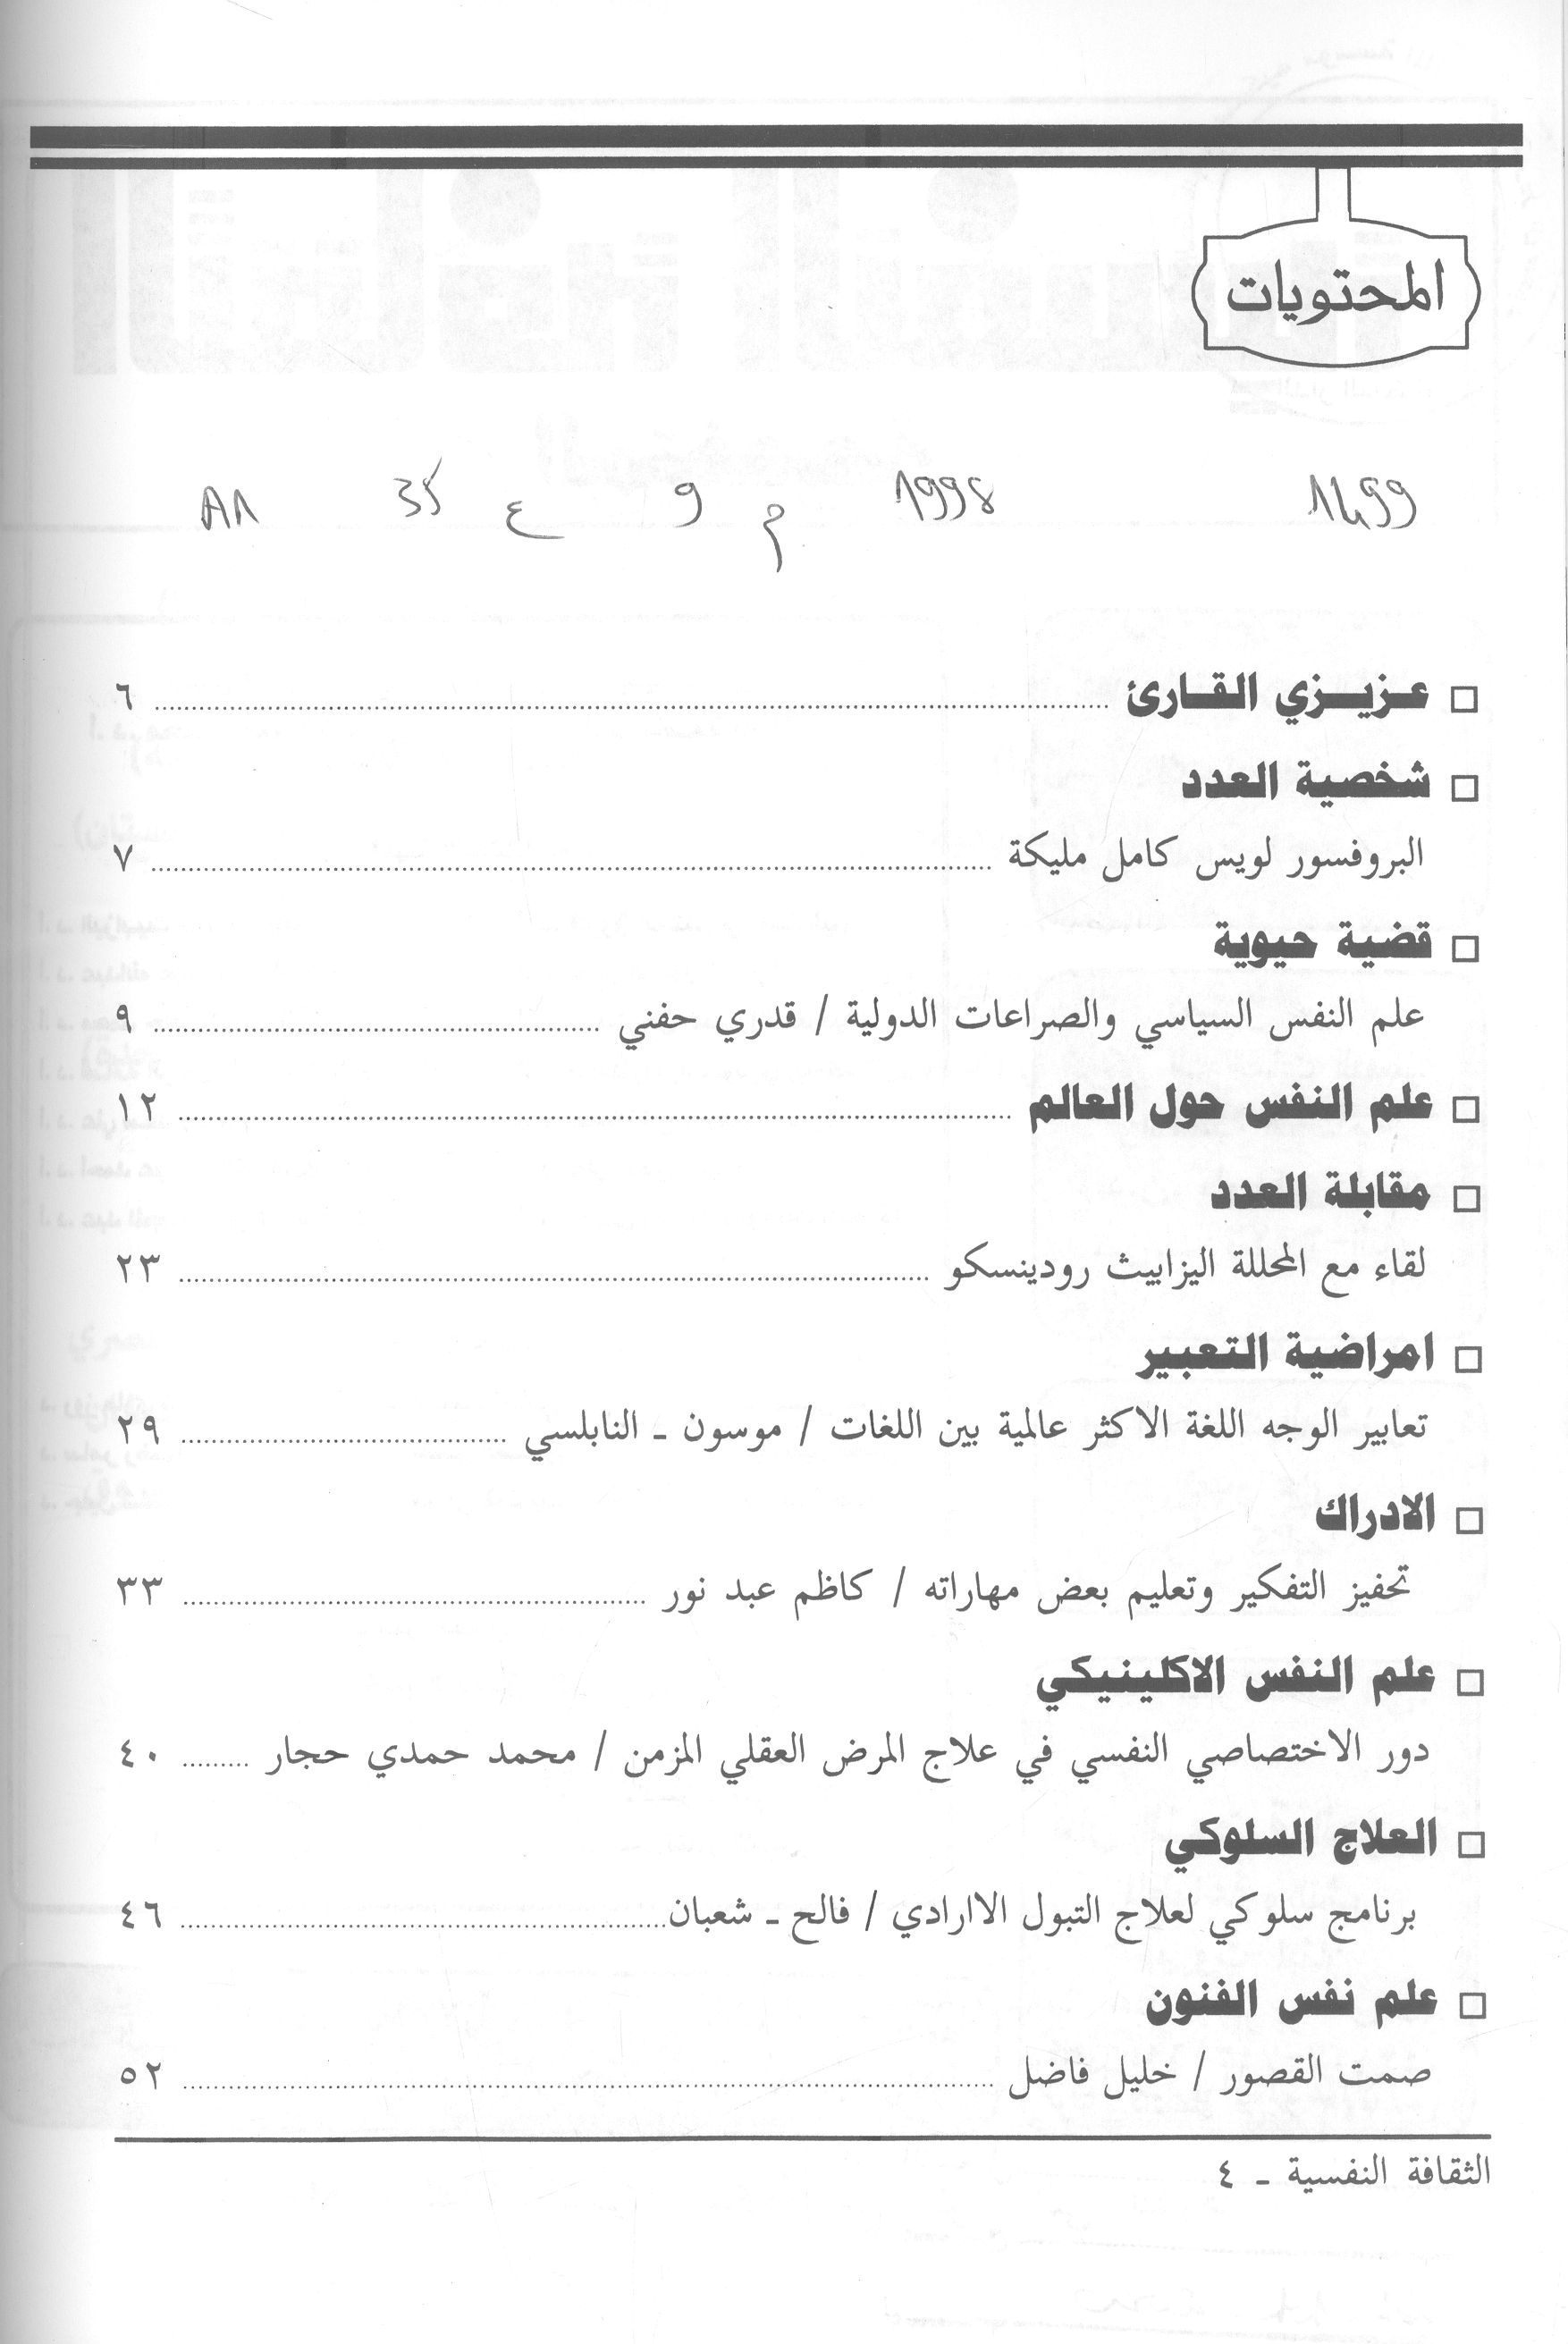 المحتويات
1499 1998 م 9 ع 35
□ عزيزي القارئ ........ ٦
□ شخصية العدد
البروفسور لويس كامل مليكة ........ ٧
□ قضية حيوية
علم النفس السياسي والصراعات الدولية / قدري حفني ........ ٩
□ علم النفس حول العالم ........ ١٢
□ مقابلة العدد
لقاء مع المحللة اليزابيث رودينسكو ........ ٢٣
□ امراضية التعبير
تعابير الوجه اللغة الاكثر عالمية بين اللغات / موسون ـ النابلسي ........ ٢٩
□ الادراك
تحفيز التفكير وتعليم بعض مهاراته / كاظم عبد نور ........ ٣٣
□ علم النفس الاكلينيكي
دور الاختصاصي النفسي في علاج المرض العقلي المزمن / محمد حمدي حجار ........ ٤٠
□ العلاج السلوكي
برنامج سلوكي لعلاج التبول الاارادي / فالح ـ شعبان ........ ٤٦
□ علم نفس الفنون
صمت القصور / خليل فاضل ........ ٥٢
الثقافة النفسية ـ ٤